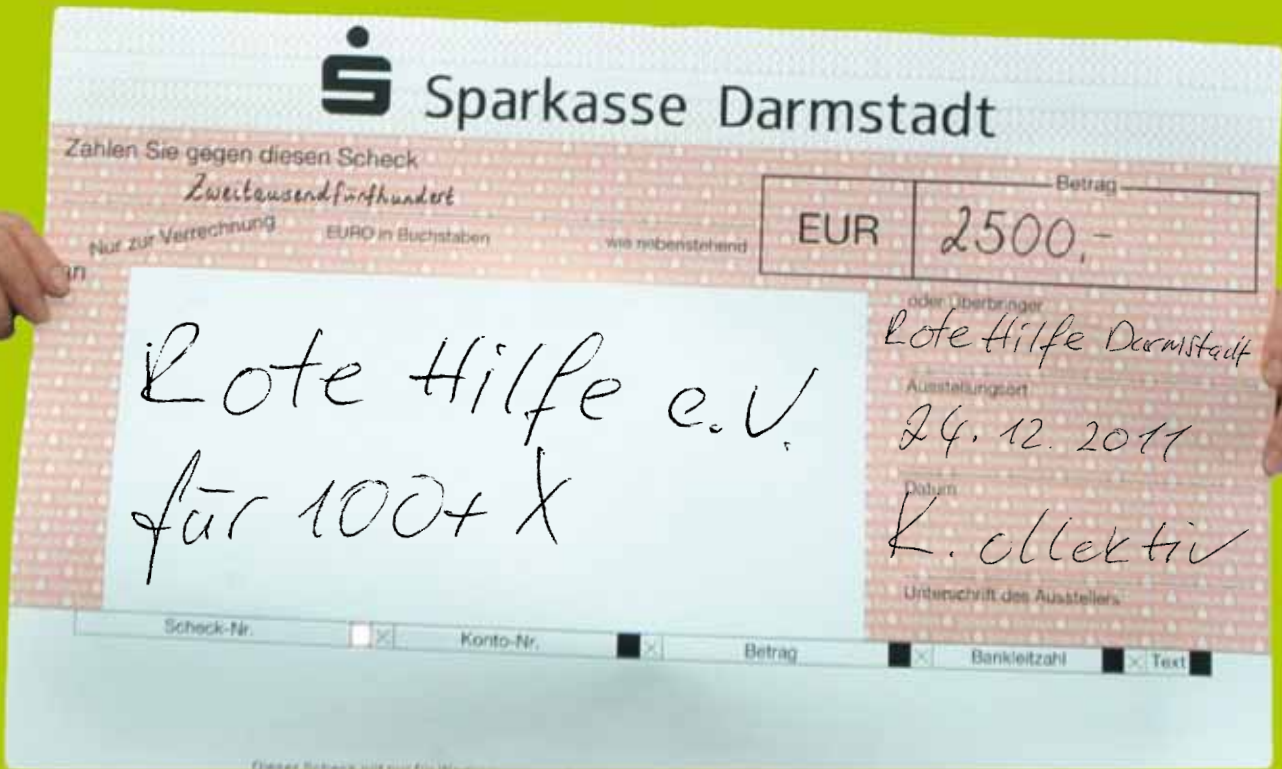 Sparkasse Darmstadt
Zahlen Sie gegen diesen Scheck
Zweitausendfünfhundert
Betrag
EUR 2500,-
Nur zur Verrechnung EURO in Buchstaben wie nebenstehend
an
oder Überbringer
Rote Hilfe e.V.
für 100+ X
Rote Hilfe Darmstadt
Ausstellungsort
24.12.2011
Datum
K. ollektiv
Unterschrift des Ausstellers
Scheck-Nr. Konto-Nr. Betrag Bankleitzahl Text